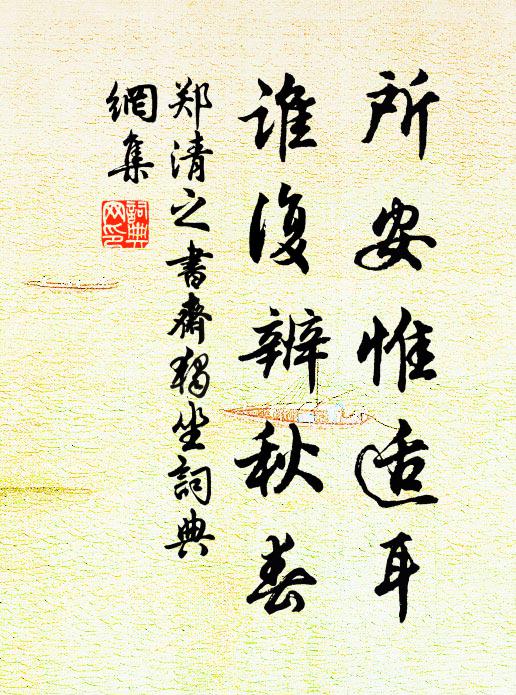 所安惟适耳
谁复辨秋春
郑清之书斋独坐詞典
網集
詞典网印